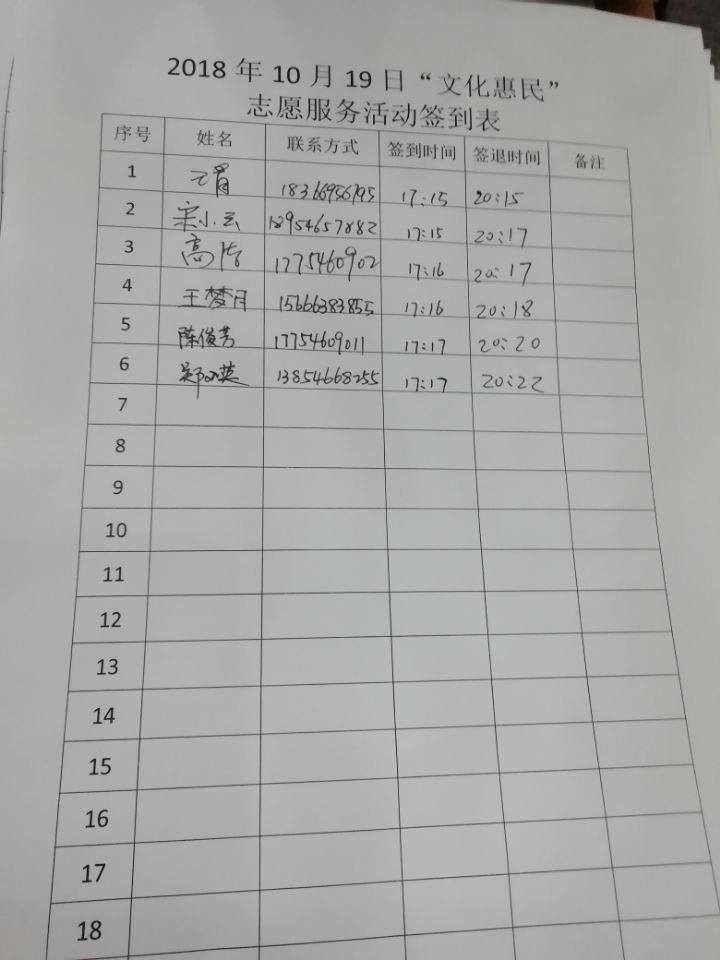 2018 年 10 月 19 日 “文化惠民”
志愿服务活动签到表
序号 姓名 联系方式 签到时间 签退时间 备注
1 17:15 20:15
2 宋小云 17:15 20:17
3 高 1775460902 17:16 20:17
4 王梦月 15666383855 17:16 20:18
5 陈俊芳 17754609011 17:17 20:20
6 郑 13854668255 17:17 20:22
7
8
9
10
11
12
13
14
15
16
17
18